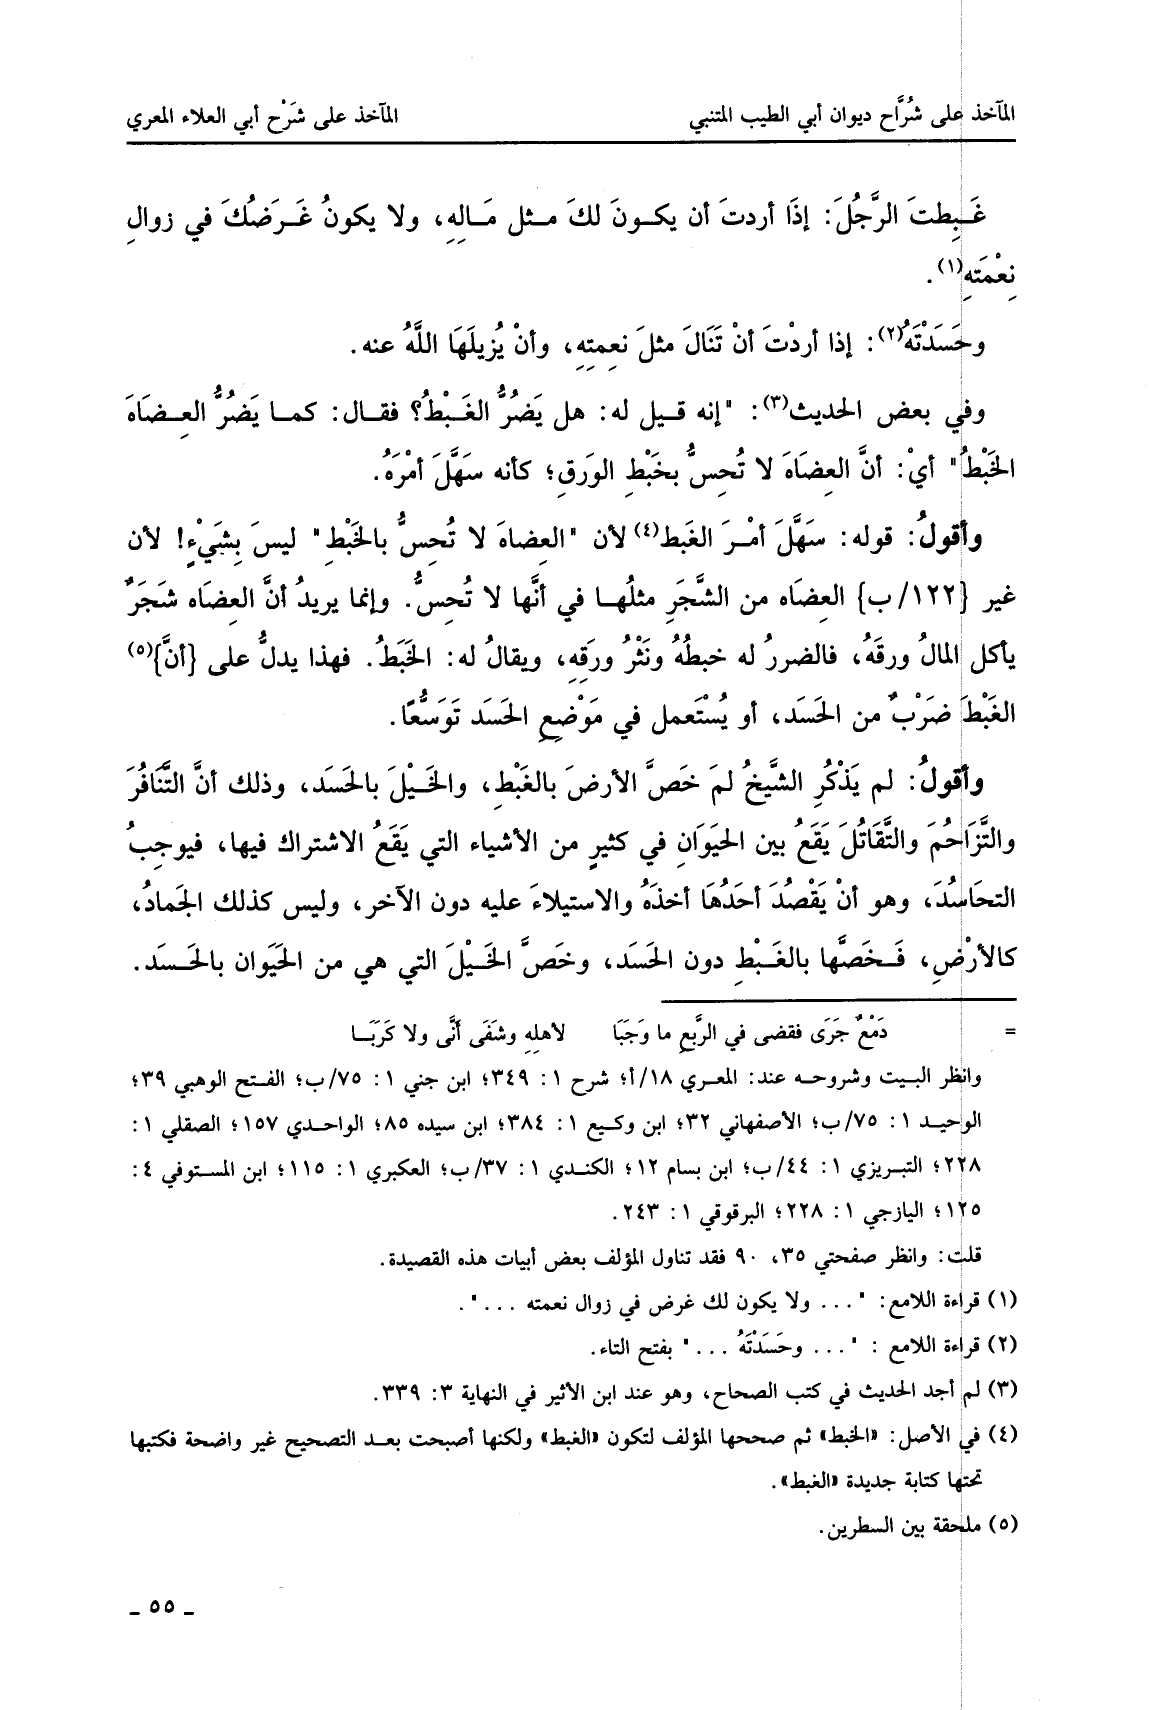 المآخذ على شُرَّاح ديوان أبي الطيب المتنبي المآخذ على شَرْح أبي العلاء المعري
غَبِطتَ الرَّجُلَ: إذَا أردتَ أن يكونَ لكَ مثل مَالِهِ، ولا يكونُ غَرَضُكَ في زوالِ
نِعْمَتهِ(١).
وحَسَدْتَهُ(٢): إذا أردْتَ أنْ تَنَالَ مثلَ نعمتِهِ، وأنْ يُزيلَهَا اللَّهُ عنه.
وفي بعض الحديث(٣): "إنه قيل له: هل يَضُرُّ الغَبْطُ؟ فقال: كما يَضُرُّ العِضَاهَ
الخَبْطُ" أيْ: أنَّ العِضَاهَ لا تُحِسُّ بخَبْطِ الوَرقِ؛ كأنه سَهَّلَ أمْرَهُ.
وأقولُ: قوله: سَهَّلَ أمْرَ الغَبط(٤) لأن "العضاهَ لا تُحِسُّ بالخَبْطِ" ليسَ بِشَيْءٍ! لأن
غير {١٢٢/ب} العضَاه من الشَّجَرِ مثلُها في أنَّها لا تُحِسُّ. وإنما يريدُ أنَّ العضَاه شَجَرٌ
يأكل المالُ ورقَهُ، فالضررُ له خبطُهُ ونَثْرُ ورقِهِ، ويقالُ له: الخَبَطُ. فهذا يدلُّ على {أنَّ}(٥)
الغَبْطَ ضَرْبٌ من الحَسَد، أو يُسْتَعمل في مَوْضِعِ الحَسَد تَوَسُّعًا.
وأقولُ: لم يَذْكُرِ الشَّيخُ لمَ خَصَّ الأرضَ بالغَبْطِ، والخَيْلَ بالحَسَد، وذلك أنَّ التَّنَافُرَ
والتَّزَاحُمَ والتَّقَاتُلَ يَقَعُ بين الحَيَوَانِ في كثيرٍ من الأشياء التي يَقَعُ الاشتراك فيها، فيوجِبُ
التحَاسُدَ، وهو أنْ يَقْصُدَ أحَدُهَا أخذَهُ والاستيلاءَ عليه دون الآخر، وليس كذلك الجَمادُ،
كالأرْضِ، فَخَصَّها بالغَبْطِ دون الحَسَد، وخَصَّ الخَيْلَ التي هي من الحَيَوان بالحَسَد.
= دَمْعٌ جَرَى فقضى في الرَّبعِ ما وَجَبَا لأهلِهِ وشَفَى أَنَّى ولا كَرَبَا
وانظر البيت وشروحه عند: المعري ١٨/أ؛ شرح ١: ٣٤٩؛ ابن جني ١: ٧٥/ب؛ الفتح الوهبي ٣٩؛
الوحيد ١: ٧٥/ب؛ الأصفهاني ٣٢؛ ابن وكيع ١: ٣٨٤؛ ابن سيده ٨٥؛ الواحدي ١٥٧؛ الصقلي ١:
٢٢٨؛ التبريزي ١: ٤٤/ب؛ ابن بسام ١٢؛ الكندي ١: ٣٧/ب؛ العكبري ١: ١١٥؛ ابن المستوفي ٤:
١٢٥؛ اليازجي ١: ٢٢٨؛ البرقوقي ١: ٢٤٣.
قلت: وانظر صفحتي ٣٥، ٩٠ فقد تناول المؤلف بعض أبيات هذه القصيدة.
(١) قراءة اللامع: "... ولا يكون لك غرض في زوال نعمته ...".
(٢) قراءة اللامع : "... وحَسَدْتَهُ ..." بفتح التاء.
(٣) لم أجد الحديث في كتب الصحاح، وهو عند ابن الأثير في النهاية ٣: ٣٣٩.
(٤) في الأصل: «الخبط» ثم صححها المؤلف لتكون «الغبط» ولكنها أصبحت بعد التصحيح غير واضحة فكتبها
تحتها كتابة جديدة «الغبط».
(٥) ملحقة بين السطرين.
ـ ٥٥ ـ